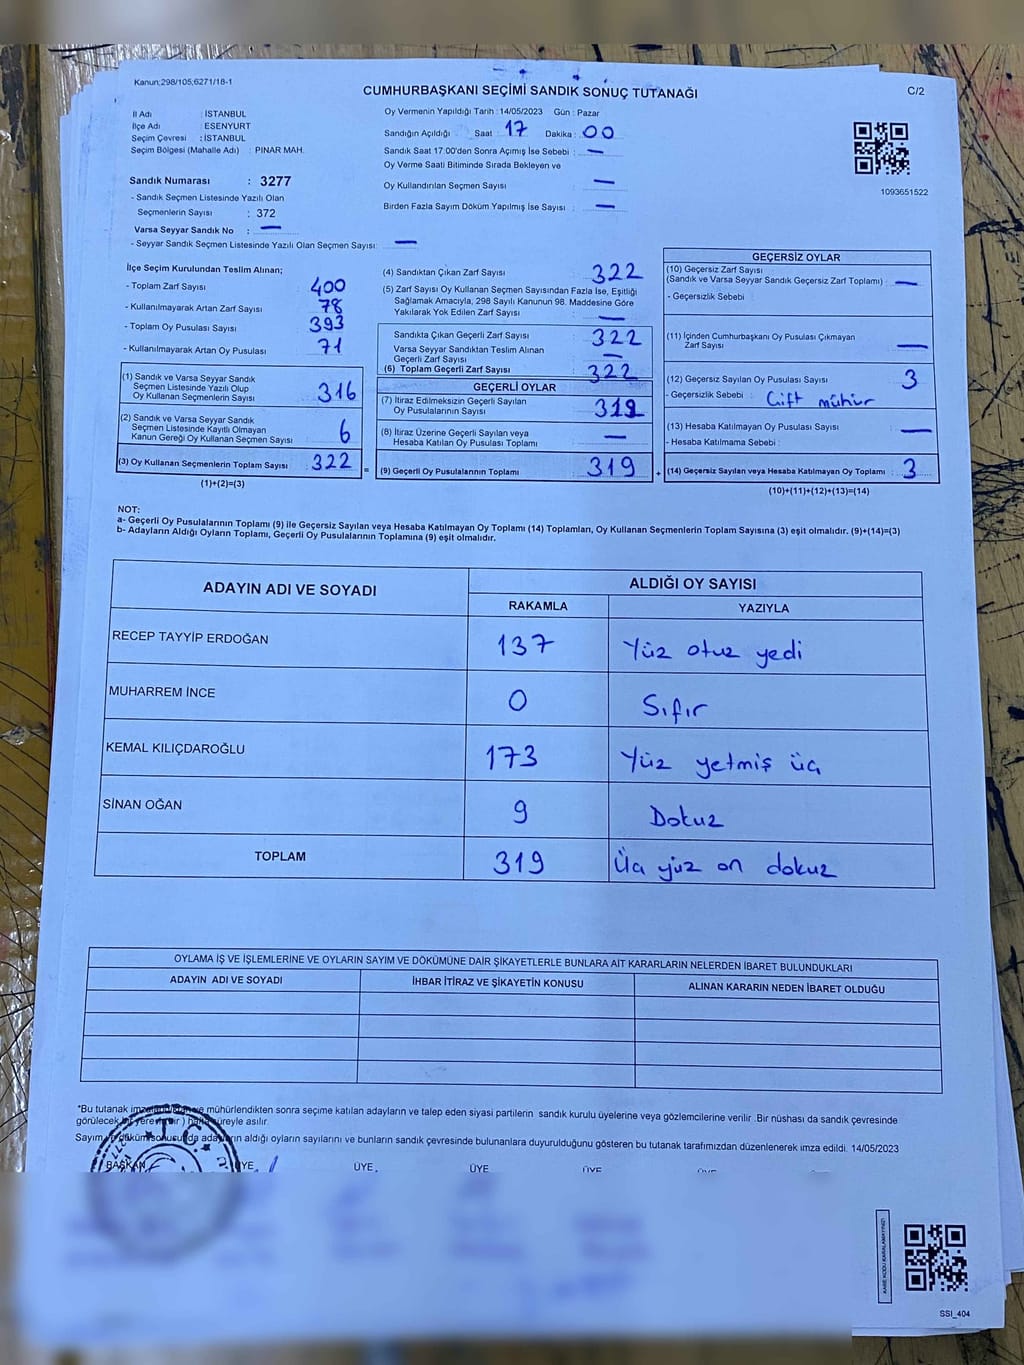 Kanun:298/105;6271/18-1
CUMHURBAŞKANI SEÇİMİ SANDIK SONUÇ TUTANAĞI
C/2
İl Adı : İSTANBUL
İlçe Adı : ESENYURT
Seçim Çevresi : İSTANBUL
Seçim Bölgesi (Mahalle Adı) : PINAR MAH.
Oy Vermenin Yapıldığı Tarih : 14/05/2023 Gün : Pazar
Sandığın Açıldığı Saat : 17 Dakika : 00
Sandık Saat 17:00'den Sonra Açımış İse Sebebi : —
Oy Verme Saati Bitiminde Sırada Bekleyen ve
Oy Kullandırılan Seçmen Sayısı : —
Birden Fazla Sayım Döküm Yapılmış İse Sayısı : —
1093651522
Sandık Numarası : 3277
- Sandık Seçmen Listesinde Yazılı Olan
Seçmenlerin Sayısı : 372
Varsa Seyyar Sandık No : —
- Seyyar Sandık Seçmen Listesinde Yazılı Olan Seçmen Sayısı: —
İlçe Seçim Kurulundan Teslim Alınan;
- Toplam Zarf Sayısı : 400
- Kullanılmayarak Artan Zarf Sayısı : 78
- Toplam Oy Pusulası Sayısı : 393
- Kullanılmayarak Artan Oy Pusulası : 71
(1) Sandık ve Varsa Seyyar Sandık
Seçmen Listesinde Yazılı Olup
Oy Kullanan Seçmenlerin Sayısı : 316
(2) Sandık ve Varsa Seyyar Sandık
Seçmen Listesinde Kayıtlı Olmayan
Kanun Gereği Oy Kullanan Seçmen Sayısı : 6
(3) Oy Kullanan Seçmenlerin Toplam Sayısı : 322
(1)+(2)=(3)
(4) Sandıktan Çıkan Zarf Sayısı : 322
(5) Zarf Sayısı Oy Kullanan Seçmen Sayısından Fazla İse, Eşitliği
Sağlamak Amacıyla, 298 Sayılı Kanunun 98. Maddesine Göre
Yakılarak Yok Edilen Zarf Sayısı : —
Sandıkta Çıkan Geçerli Zarf Sayısı : 322
Varsa Seyyar Sandıktan Teslim Alınan
Geçerli Zarf Sayısı : —
(6) Toplam Geçerli Zarf Sayısı : 322
GEÇERLİ OYLAR
(7) İtiraz Edilmeksizin Geçerli Sayılan
Oy Pusulalarının Sayısı : 319
(8) İtiraz Üzerine Geçerli Sayılan veya
Hesaba Katılan Oy Pusulası Toplamı : —
=
(9) Geçerli Oy Pusulalarının Toplamı : 319
+
GEÇERSİZ OYLAR
(10) Geçersiz Zarf Sayısı
(Sandık ve Varsa Seyyar Sandık Geçersiz Zarf Toplamı) : —
- Geçersizlik Sebebi :
(11) İçinden Cumhurbaşkanı Oy Pusulası Çıkmayan
Zarf Sayısı : —
(12) Geçersiz Sayılan Oy Pusulası Sayısı : 3
- Geçersizlik Sebebi : Çift mühür
(13) Hesaba Katılmayan Oy Pusulası Sayısı : —
- Hesaba Katılmama Sebebi :
(14) Geçersiz Sayılan veya Hesaba Katılmayan Oy Toplamı : 3
(10)+(11)+(12)+(13)=(14)
NOT:
a- Geçerli Oy Pusulalarının Toplamı (9) ile Geçersiz Sayılan veya Hesaba Katılmayan Oy Toplamı (14) Toplamları, Oy Kullanan Seçmenlerin Toplam Sayısına (3) eşit olmalıdır. (9)+(14)=(3)
b- Adayların Aldığı Oyların Toplamı, Geçerli Oy Pusulalarının Toplamına (9) eşit olmalıdır.
ADAYIN ADI VE SOYADI
ALDIĞI OY SAYISI
RAKAMLA YAZIYLA
RECEP TAYYİP ERDOĞAN 137 Yüz otuz yedi
MUHARREM İNCE 0 Sıfır
KEMAL KILIÇDAROĞLU 173 Yüz yetmiş üç
SİNAN OĞAN 9 Dokuz
TOPLAM 319 Üç yüz on dokuz
OYLAMA İŞ VE İŞLEMLERİNE VE OYLARIN SAYIM VE DÖKÜMÜNE DAİR ŞİKAYETLERLE BUNLARA AİT KARARLARIN NELERDEN İBARET BULUNDUKLARI
ADAYIN ADI VE SOYADI İHBAR İTİRAZ VE ŞİKAYETİN KONUSU ALINAN KARARIN NEDEN İBARET OLDUĞU
*Bu tutanak mühürlendikten sonra seçime katılan adayların ve talep eden siyasi partilerin sandık kurulu üyelerine veya gözlemcilerine verilir .Bir nüshası da sandık çevresinde
görülecek süreyle asılır.
Sayım aldığı oyların sayılarını ve bunların sandık çevresinde bulunanlara duyurulduğunu gösteren bu tutanak tarafımızdan düzenlenerek imza edildi. 14/05/2023
BAŞKAN ÜYE ÜYE ÜYE ÜYE
KARE KODU KARALAMAYINIZ!
SSI_404